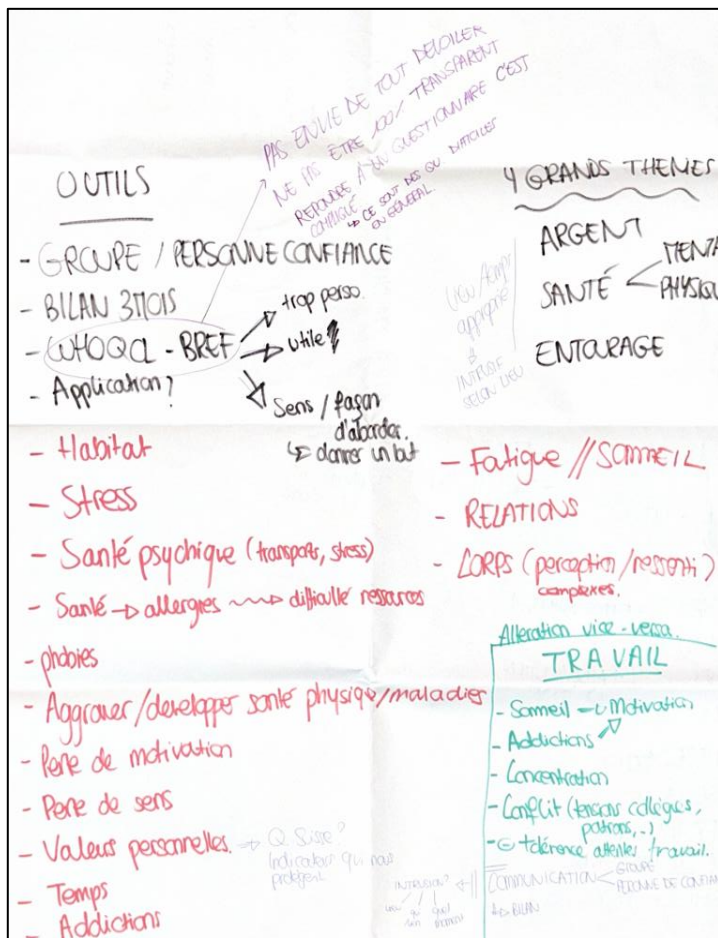 PAS ENVIE DE TOUT DEVOILER
NE PAS ETRE 100% TRANSPARENT
REPONDRE A UN QUESTIONNAIRE C'EST
COMPLIQUÉ
↳ CE SONT DES QU DIFFICILES
EN GÉNÉRAL
OUTILS
- GROUPE / PERSONNE CONFIANCE
- BILAN 3MOIS
- WHOQOL - BREF
→ trop perso.
→ utile
→ Sens / façon
d'aborder.
↳ donner un but
- Application?
4 GRANDS THEMES
ARGENT
SANTÉ < MENTA
PHYSIQU
ENTOURAGE
Lieu / temps
approprié
INTRUSIF
SELON LIEU
- Habitat
- Stress
- Santé psychique (transports, stress)
- Santé → allergies ~~> difficulté
- phobies
- Aggraver/developper santé physiqu/maladies
- Perte de motivation
- Perte de sens
- Valeurs personnelles. → Q. Suisse?
Indicateurs qui nous
protègent
- Temps
- Addictions
- Fatigue // SOMMEIL
- RELATIONS
- CORPS (perception/ressenti)
complexes.
Alteration vice-versa.
TRAVAIL
- Sommeil → Motivation
- Addictions
- Concentration
- Conflit (tensions collègues,
patrons,..)
- ⊖ tolérence attentes travail.
INTRUSION?
COMMUNICATION < GROUPE
PERONNE DE CONFIAN
↳ BILAN